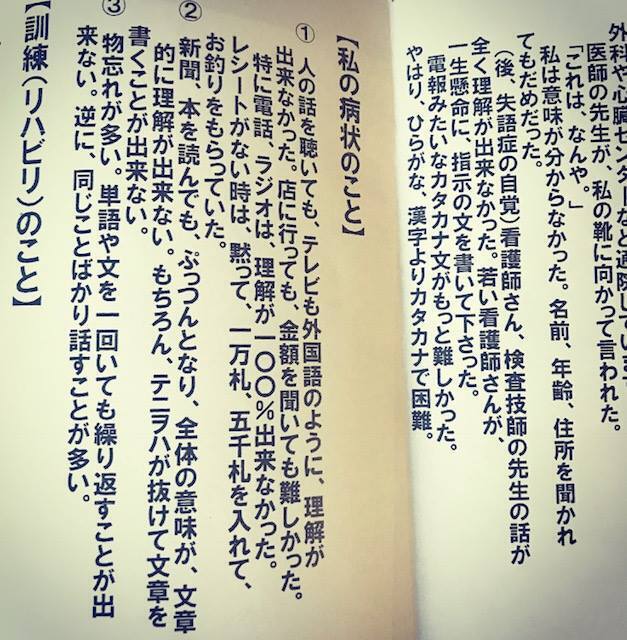 外科や心臓センターなど通院してい
医師の先生が、私の靴に向かって言われた。
「これは、なんや。」
私は意味が分からなかった。名前、年齢、住所を聞かれ
てもだめだった。
(後、失語症の自覚)看護師さん、検査技師の先生の話が
全く理解が出来なかった。若い看護師さんが、
一生懸命に、指示の文を書いて下さった。
電報みたいなカタカナ文がもっと難しかった。
やはり、ひらがな、漢字よりカタカナで困難。
【私の病状のこと】
① 人の話を聴いても、テレビも外国語のように、理解が
出来なかった。店に行っても、金額を聞いても難しかった。
特に電話、ラジオは、理解が一〇〇%出来なかった。
レシートがない時は、黙って、一万札、五千札を入れて、
お釣りをもらっていた。
② 新聞、本を読んでも、ぷっつんとなり、全体の意味が、文章
的に理解が出来ない。もちろん、テニヲハが抜けて文章を
書くことが出来ない。
③ 物忘れが多い。単語や文を一回いても繰り返すことが出
来ない。逆に、同じことばかり話すことが多い。
【訓練(リハビリ)のこと】